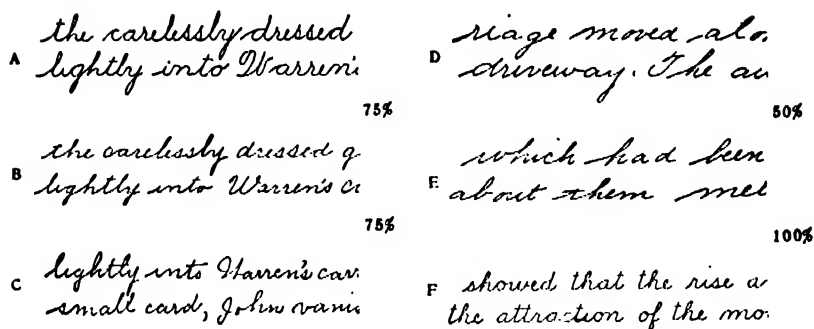 A the carelessly dressed
lightly into Warren's
75%
B the carelessly dressed g
lightly into Warren's ca
75%
C lightly into Warren's car.
small card, John vanis
D riage moved alo
driveway. The au
50%
E which had been
about them met
100%
F showed that the rise a
the attraction of the mo